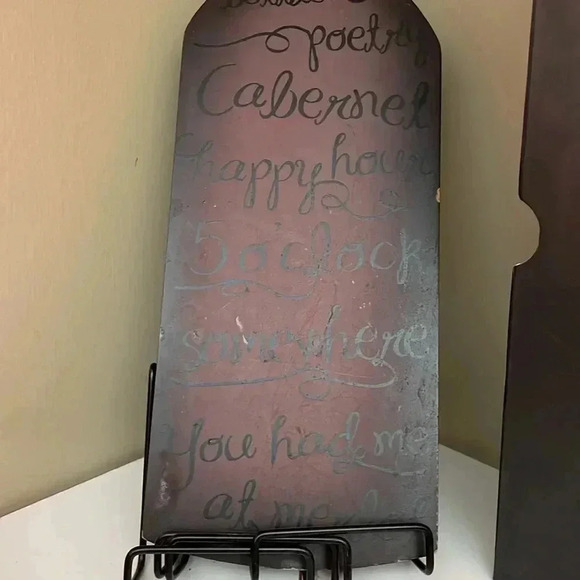 poetry
Cabernet
happy hour
5 o'clock
somewhere
You had me
at